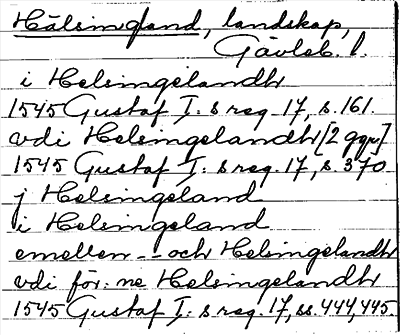 Hälsingland, landskap,
Gävleb. l.
i Helsingelandh
1545 Gustaf I:s reg. 17, s. 161.
vdi Helsingelandh [2 ggr]
1545 Gustaf I:s reg. 17, s. 370
j Helsingeland
i Helsingeland
emellen -- och Helsingelandh
vdi för:ne Helsingelandh
1545 Gustaf I:s reg. 17, ss. 444, 445.